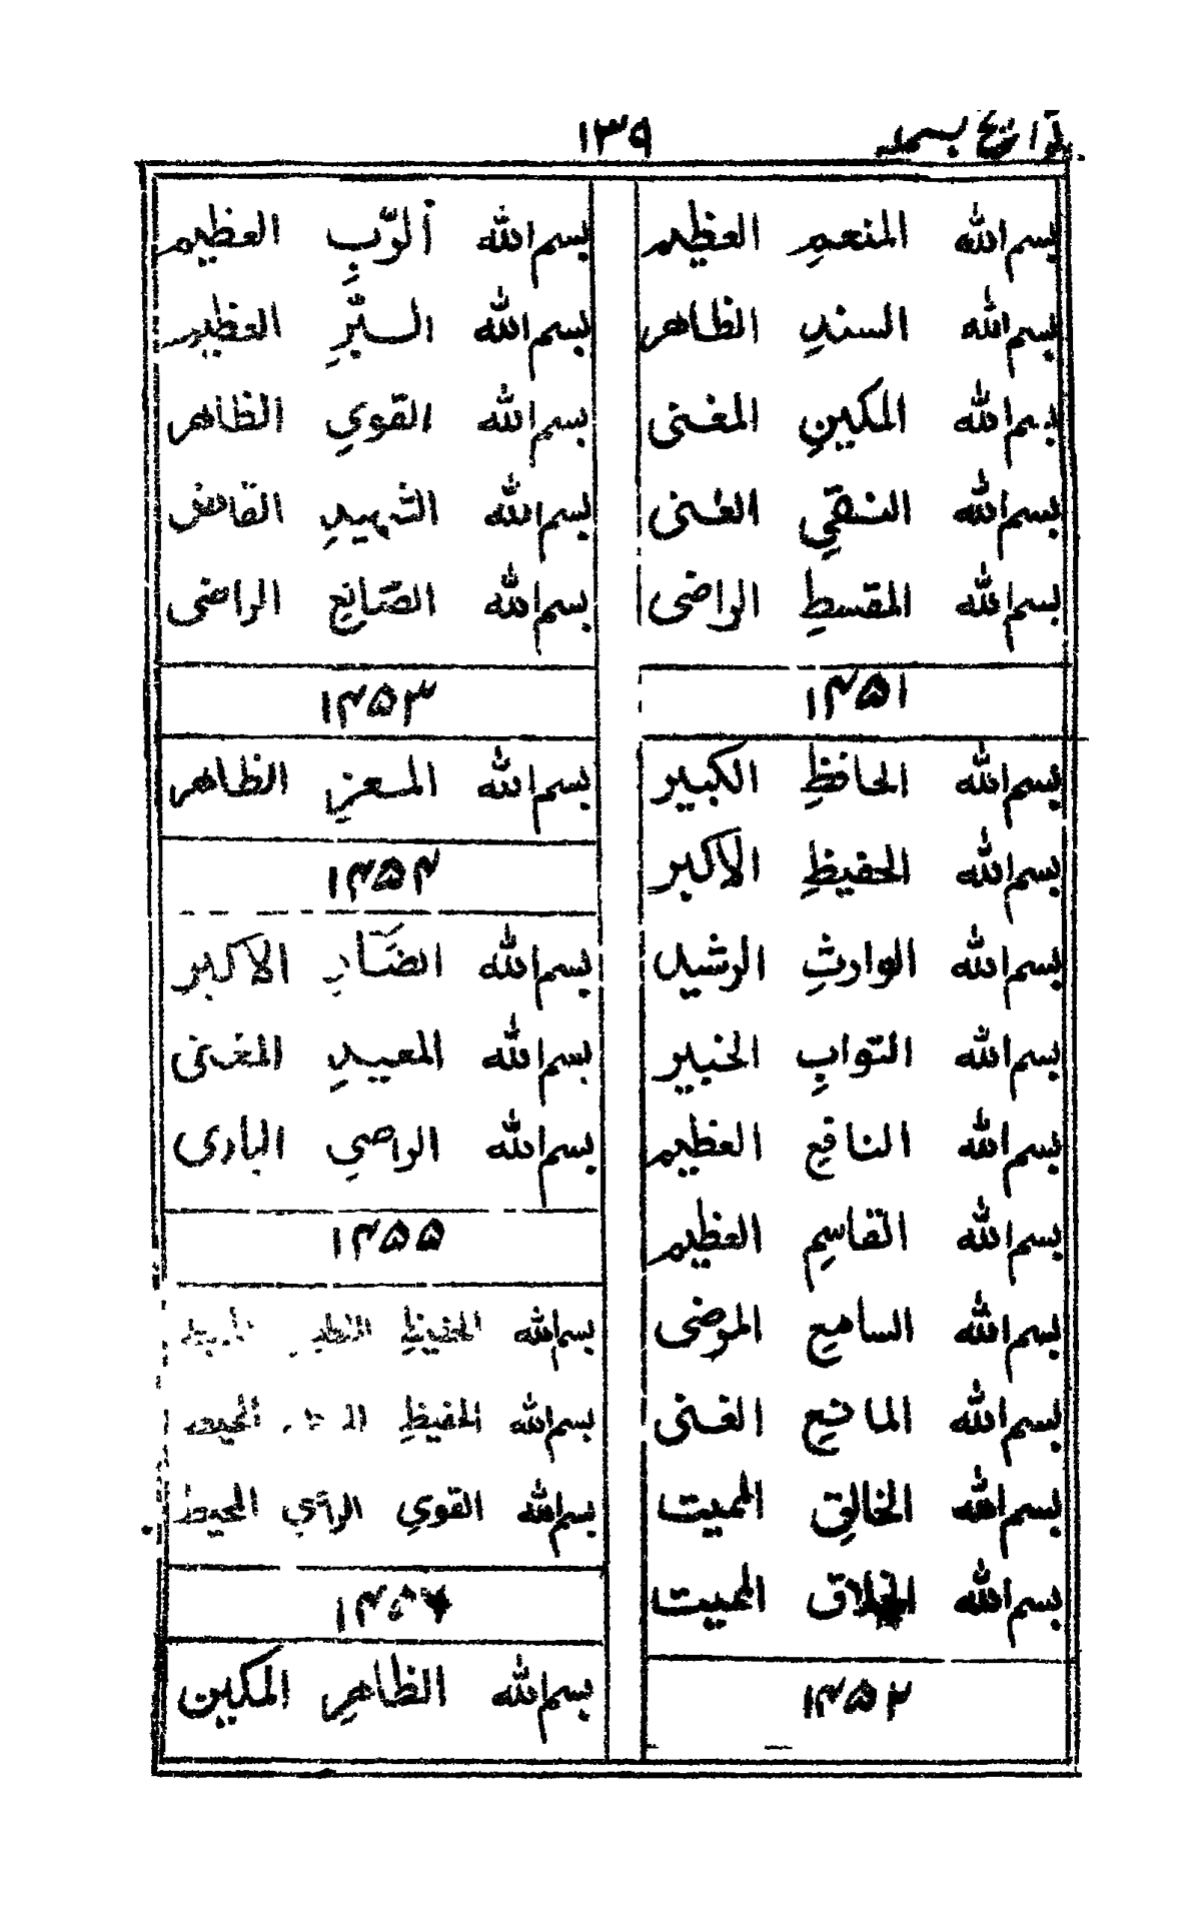 تواریخ بسملہ ۱۳۹
بسم الله المنعمِ العظيم
بسم الله السندِ الظاهر
بسم الله المكينِ المغنى
بسم الله النقيِ الغنى
بسم الله المقسطِ الراضى
۱۴۵۱
بسم الله الحافظِ الكبير
بسم الله الحفيظِ الاكبر
بسم الله الوارثِ الرشيد
بسم الله التوابِ الخبير
بسم الله النافعِ العظيم
بسم الله القاسمِ العظيم
بسم الله السامعِ المرضى
بسم الله المانعِ الغنى
بسم الله الخالقِ المميت
بسم الله الخلاق المميت
۱۴۵۲
بسم الله الرَّبِ العظيم
بسم الله البّرِ العظيم
بسم الله القويِ الظاهر
بسم الله الشهيدِ القابض
بسم الله الصَّانعِ الراضى
۱۴۵۳
بسم الله المعزِ الظاهر
۱۴۵۴
بسم الله الضَّارِ الاكبر
بسم الله المعيدِ المغنى
بسم الله الراضيِ البارى
۱۴۵۵
بسم الله الحفيظِ
بسم الله الحفيظِ
بسم الله القويِ الراضيِ المحيط
۱۴۵۶
بسم الله الظاهرِ المكين